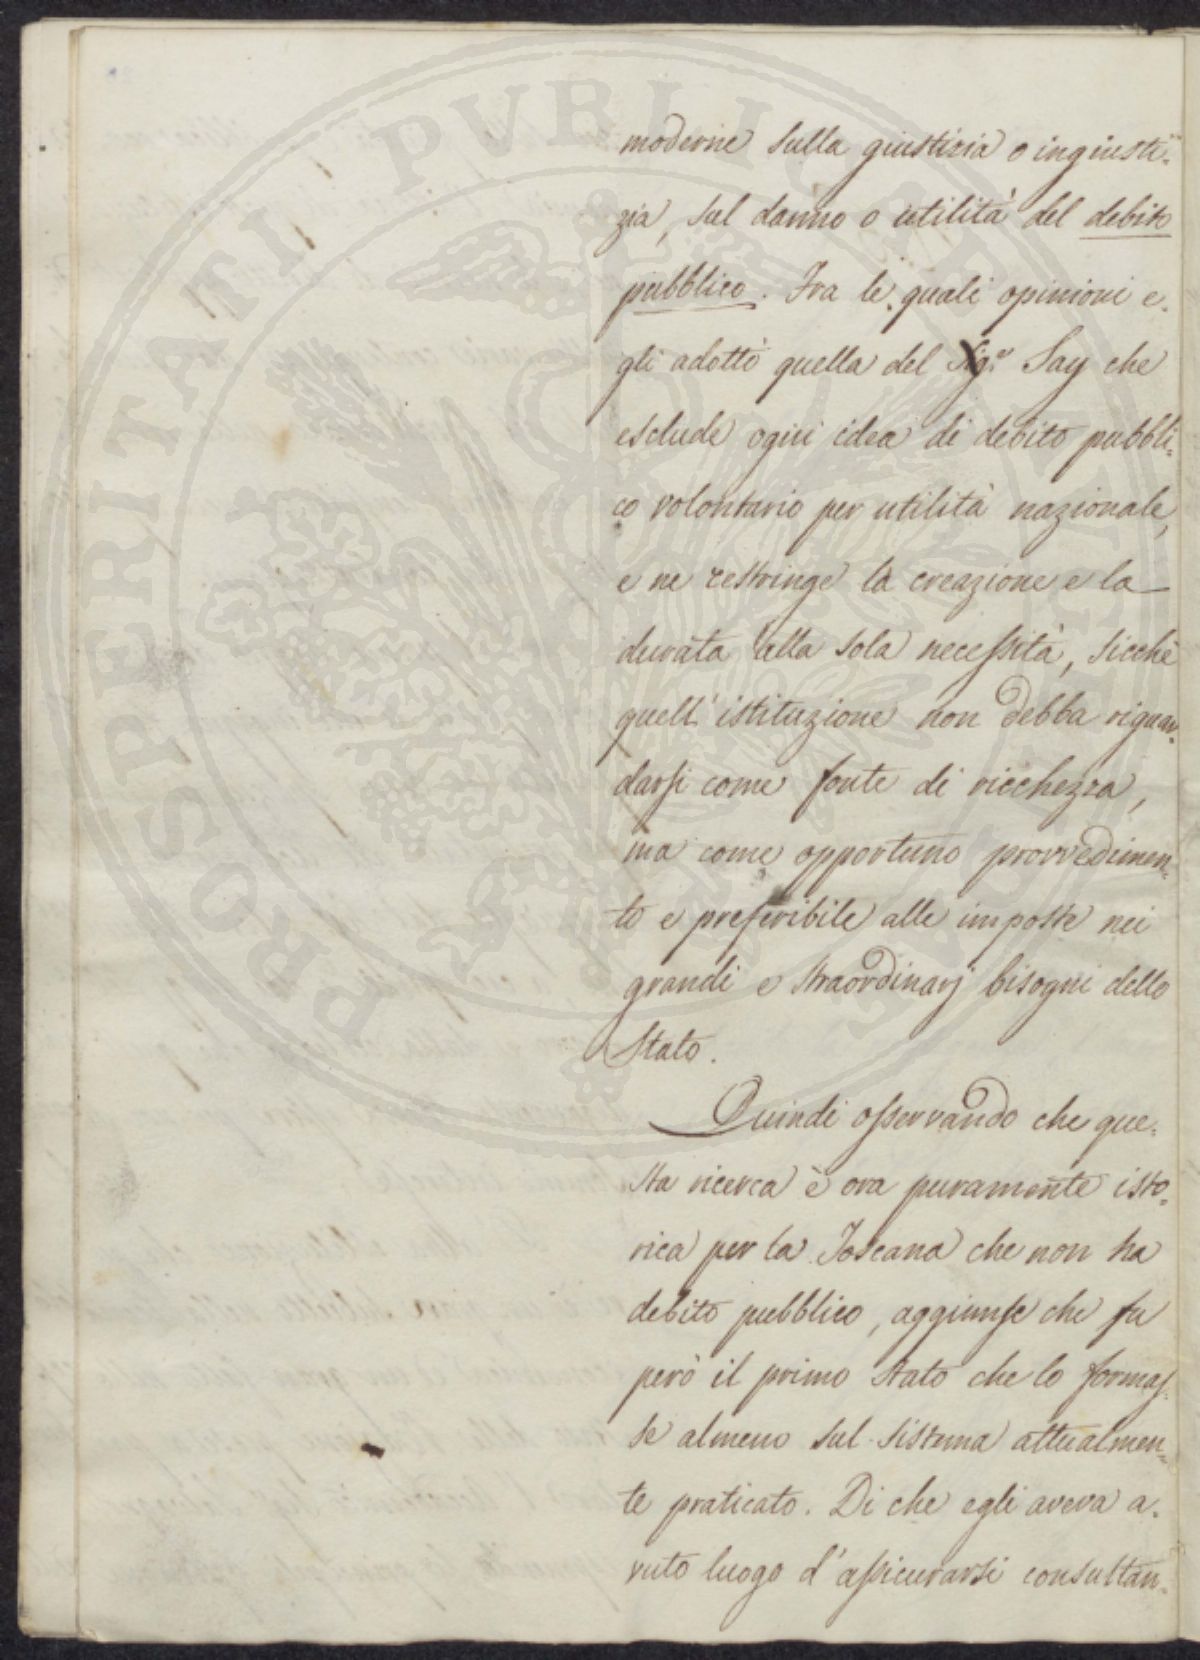 moderne sulla giustizia o ingiusti-
zia, sul danno o utilità del debito
pubblico. Fra le quali opinioni e-
gli adottò quella del Sig.r Say che
esclude ogni idea di debito pubbli-
co volontario per utilità nazionale,
e ne restringe la creazione e la
durata alla sola necessità, sicchè
quell'istituzione non debba riguar-
darsi come fonte di ricchezza,
ma come opportuno provvedimen-
to e preferibile alle imposte nei
grandi e straordinarj bisogni dello
Stato.
Quindi osservando che que-
sta ricerca è ora puramente isto-
rica per la Toscana che non ha
debito pubblico, aggiunse che fu
però il primo stato che lo formas-
se almeno sul sistema attualmen-
te praticato. Di che egli aveva a-
vuto luogo d'assicurarsi consultan-
PROSPERITATI PUBLICAE AUGENDAE